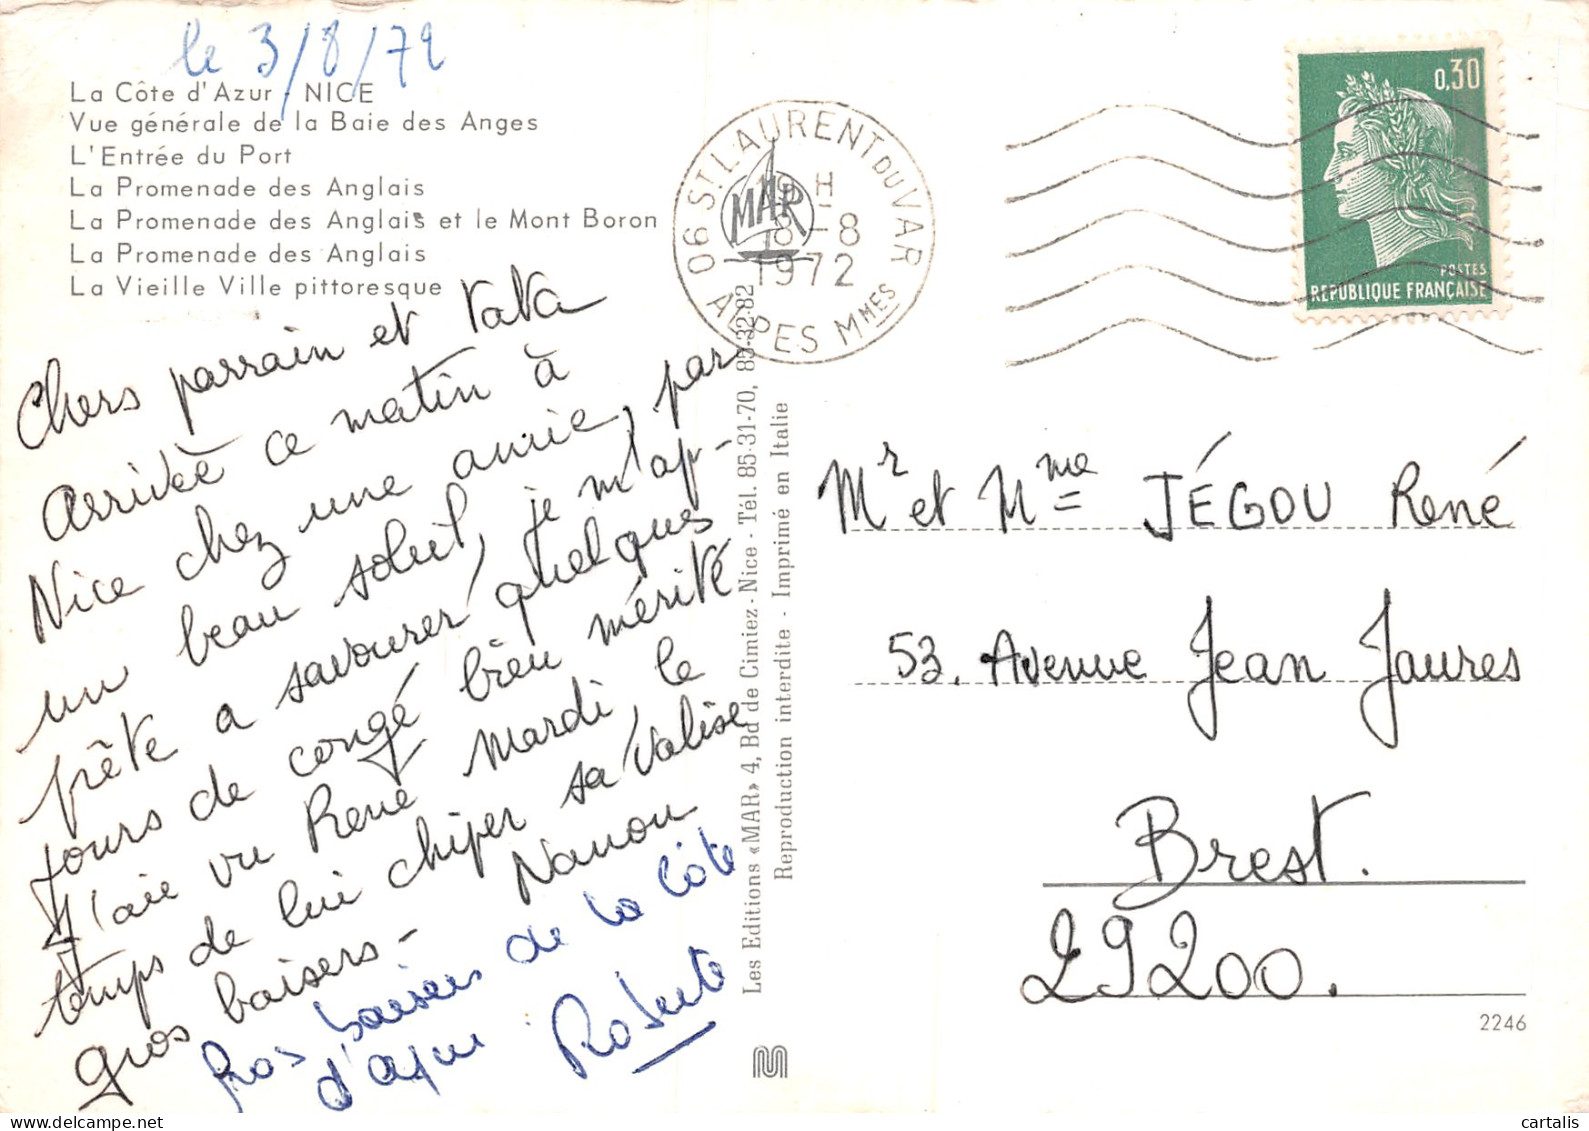 le 3/8/72
La Côte d'Azur - NICE
Vue générale de la Baie des Anges
L'Entrée du Port
La Promenade des Anglais
La Promenade des Anglais et le Mont Boron
La Promenade des Anglais
La Vieille Ville pittoresque
Chers parrain et tata
Arrivée ce matin à
Nice chez une amie, par
un beau soleil, je m'ap-
prête a savourer quelques
jours de congé bien mérité
J'aie vu René Mardi, le
temps de lui chiper sa valise
gros baisers - Nanou
Gros baisers de la Côte
d'azur Roberte
Les Editions «MAR» 4, Bd de Cimiez - Nice - Tél. 85-31-70, 85-32-82
Reproduction interdite - Imprimé en Italie
06 ST LAURENT DU VAR
ALPES MMES
H
8-8
1972
MAR
0,30
POSTES
REPUBLIQUE FRANÇAISE
Mr et Mme JÉGOU René
53, Avenue Jean Jaures
Brest.
29200.
2246
cartalis